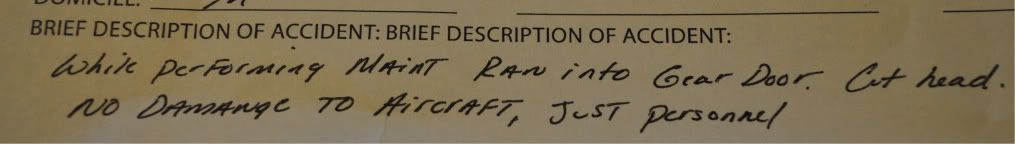 DOMICILE:
BRIEF DESCRIPTION OF ACCIDENT: BRIEF DESCRIPTION OF ACCIDENT:
While performing MAINT RAN into Gear Door. Cut head.
NO DAMANGE TO AircrAFT, JUST personnel